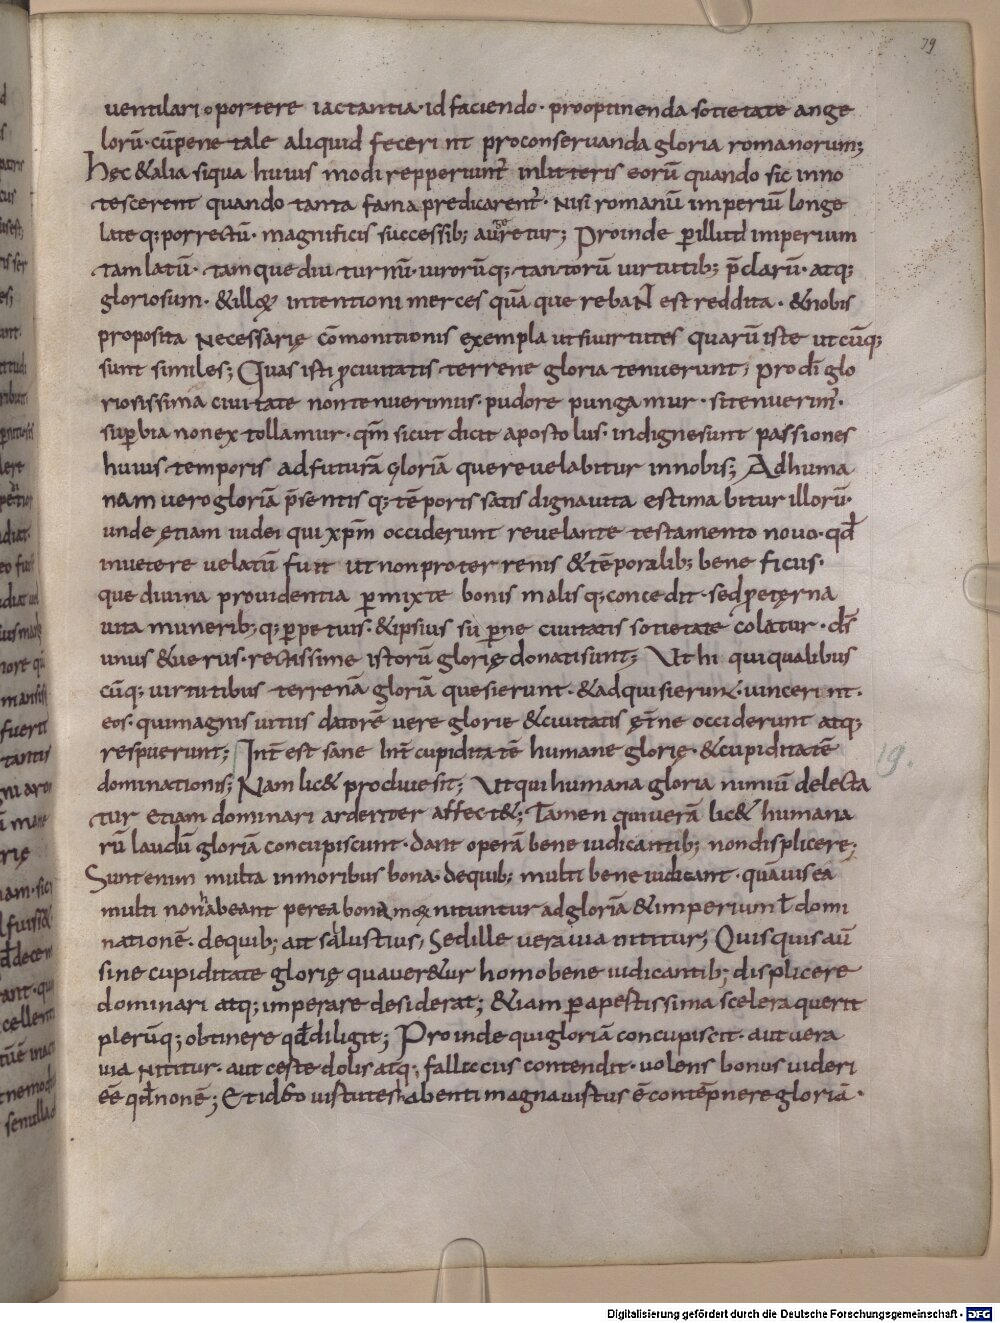 79
uentilari oportere iactantia· id faciendo· prooptinenda sotietate ange
lorū· cū pene tale aliquid fecerint proconseruanda gloria romanorum;
Hęc &alia siqua huius modi repperiunt᷑ inlitteris eorū quando sic inno
tescerent quando tanta fama predicarent᷑· Nisi romanū imperiū longe
lateq; porrectū· magnificis successib; auḡretur; Proinde ꝑ illud imperium
tam latū· tamque diuturnū· uirorūq; tantorū uirtutib; p̄clarū· atq;
gloriosum· &illoꝝ intentioni merces quā querebaNt est reddita· &nobis
proposita Necessarię cōmonitionis exempla utsi uirtutes quarū iste utcūq;
sunt similes; Quas isti ꝓ ciuitatis terrene gloria tenuerunt; pro dī glo
riosissima ciuitate non tenuerimus· pudore pungamur· si tenuerim᷑·
suꝑbia non extollamur· qm̄ sicut dicit apostolus· indigne sunt passiones
huius temporis ad futurā gloriā que reuelabitur in nobis; Ad huma
nam uero gloriā p̄sentisq; tēporis satis digna uita estimabitur illorū·
unde etiam iudei qui xp̄m occiderunt reuelante testamento nouo· qđ
in uetere uelatū fuit ut non pro terrenis &tēporalib; beneficus·
que diuina prouidentia ꝑmixte bonis malisq; concedit· sed ꝓ ęterna
uita munerib;q; ꝑpetuis· &ipsius suꝑne ciuitatis sotietate colatur· ds̄
unus &uerus· rectissime istorū glorię donati sunt; Ut hi qui qualibus
cūq; uirtutibus terrenā gloriā quesierunt· &adquisierunt· uincerint·
eos· qui magnis uitiis datorē uere glorie &ciuitatis ęt̄ne occiderunt atq;
respuerunt; Int̄est sane Int̄ cupiditatē humane glorię· &cupiditatē
19.
dominationis; Nam lic& procliue sit; Ut qui humana gloria nimiū delecta
tur etiam dominari ardenter affect&; Tamen qui uerā lic& humana
rū laudū gloriā concupiscunt· dant operā bene iudicantib; non displicere;
Sunt enim multa in moribus bona· de quib; multi bene iudicant· quāuis ea
multi non habeant per ea bona moꝝ nituntur ad gloriā &imperium ƚ domi
nationē· de quib; ait salustius; Sed ille uera uia nititur; Quisquis aū
sine cupiditate glorię qua uer&ur homo bene iudicantib; displicere
dominari atq; imperare desiderat; &iam ꝑ apertissima scelera querit
plerūq; obtinere qđ diligit; Proinde qui gloriā concupiscit· aut uera
uia Nititur· aut certe dolis atq; falliciis contendit· uolens bonus uideri
ēē qđ non ē; Et id&o uirtutes habenti magna uirtus ē contēpnere gloriā·
Digitalisierung gefördert durch die Deutsche Forschungsgemeinschaft - DFG